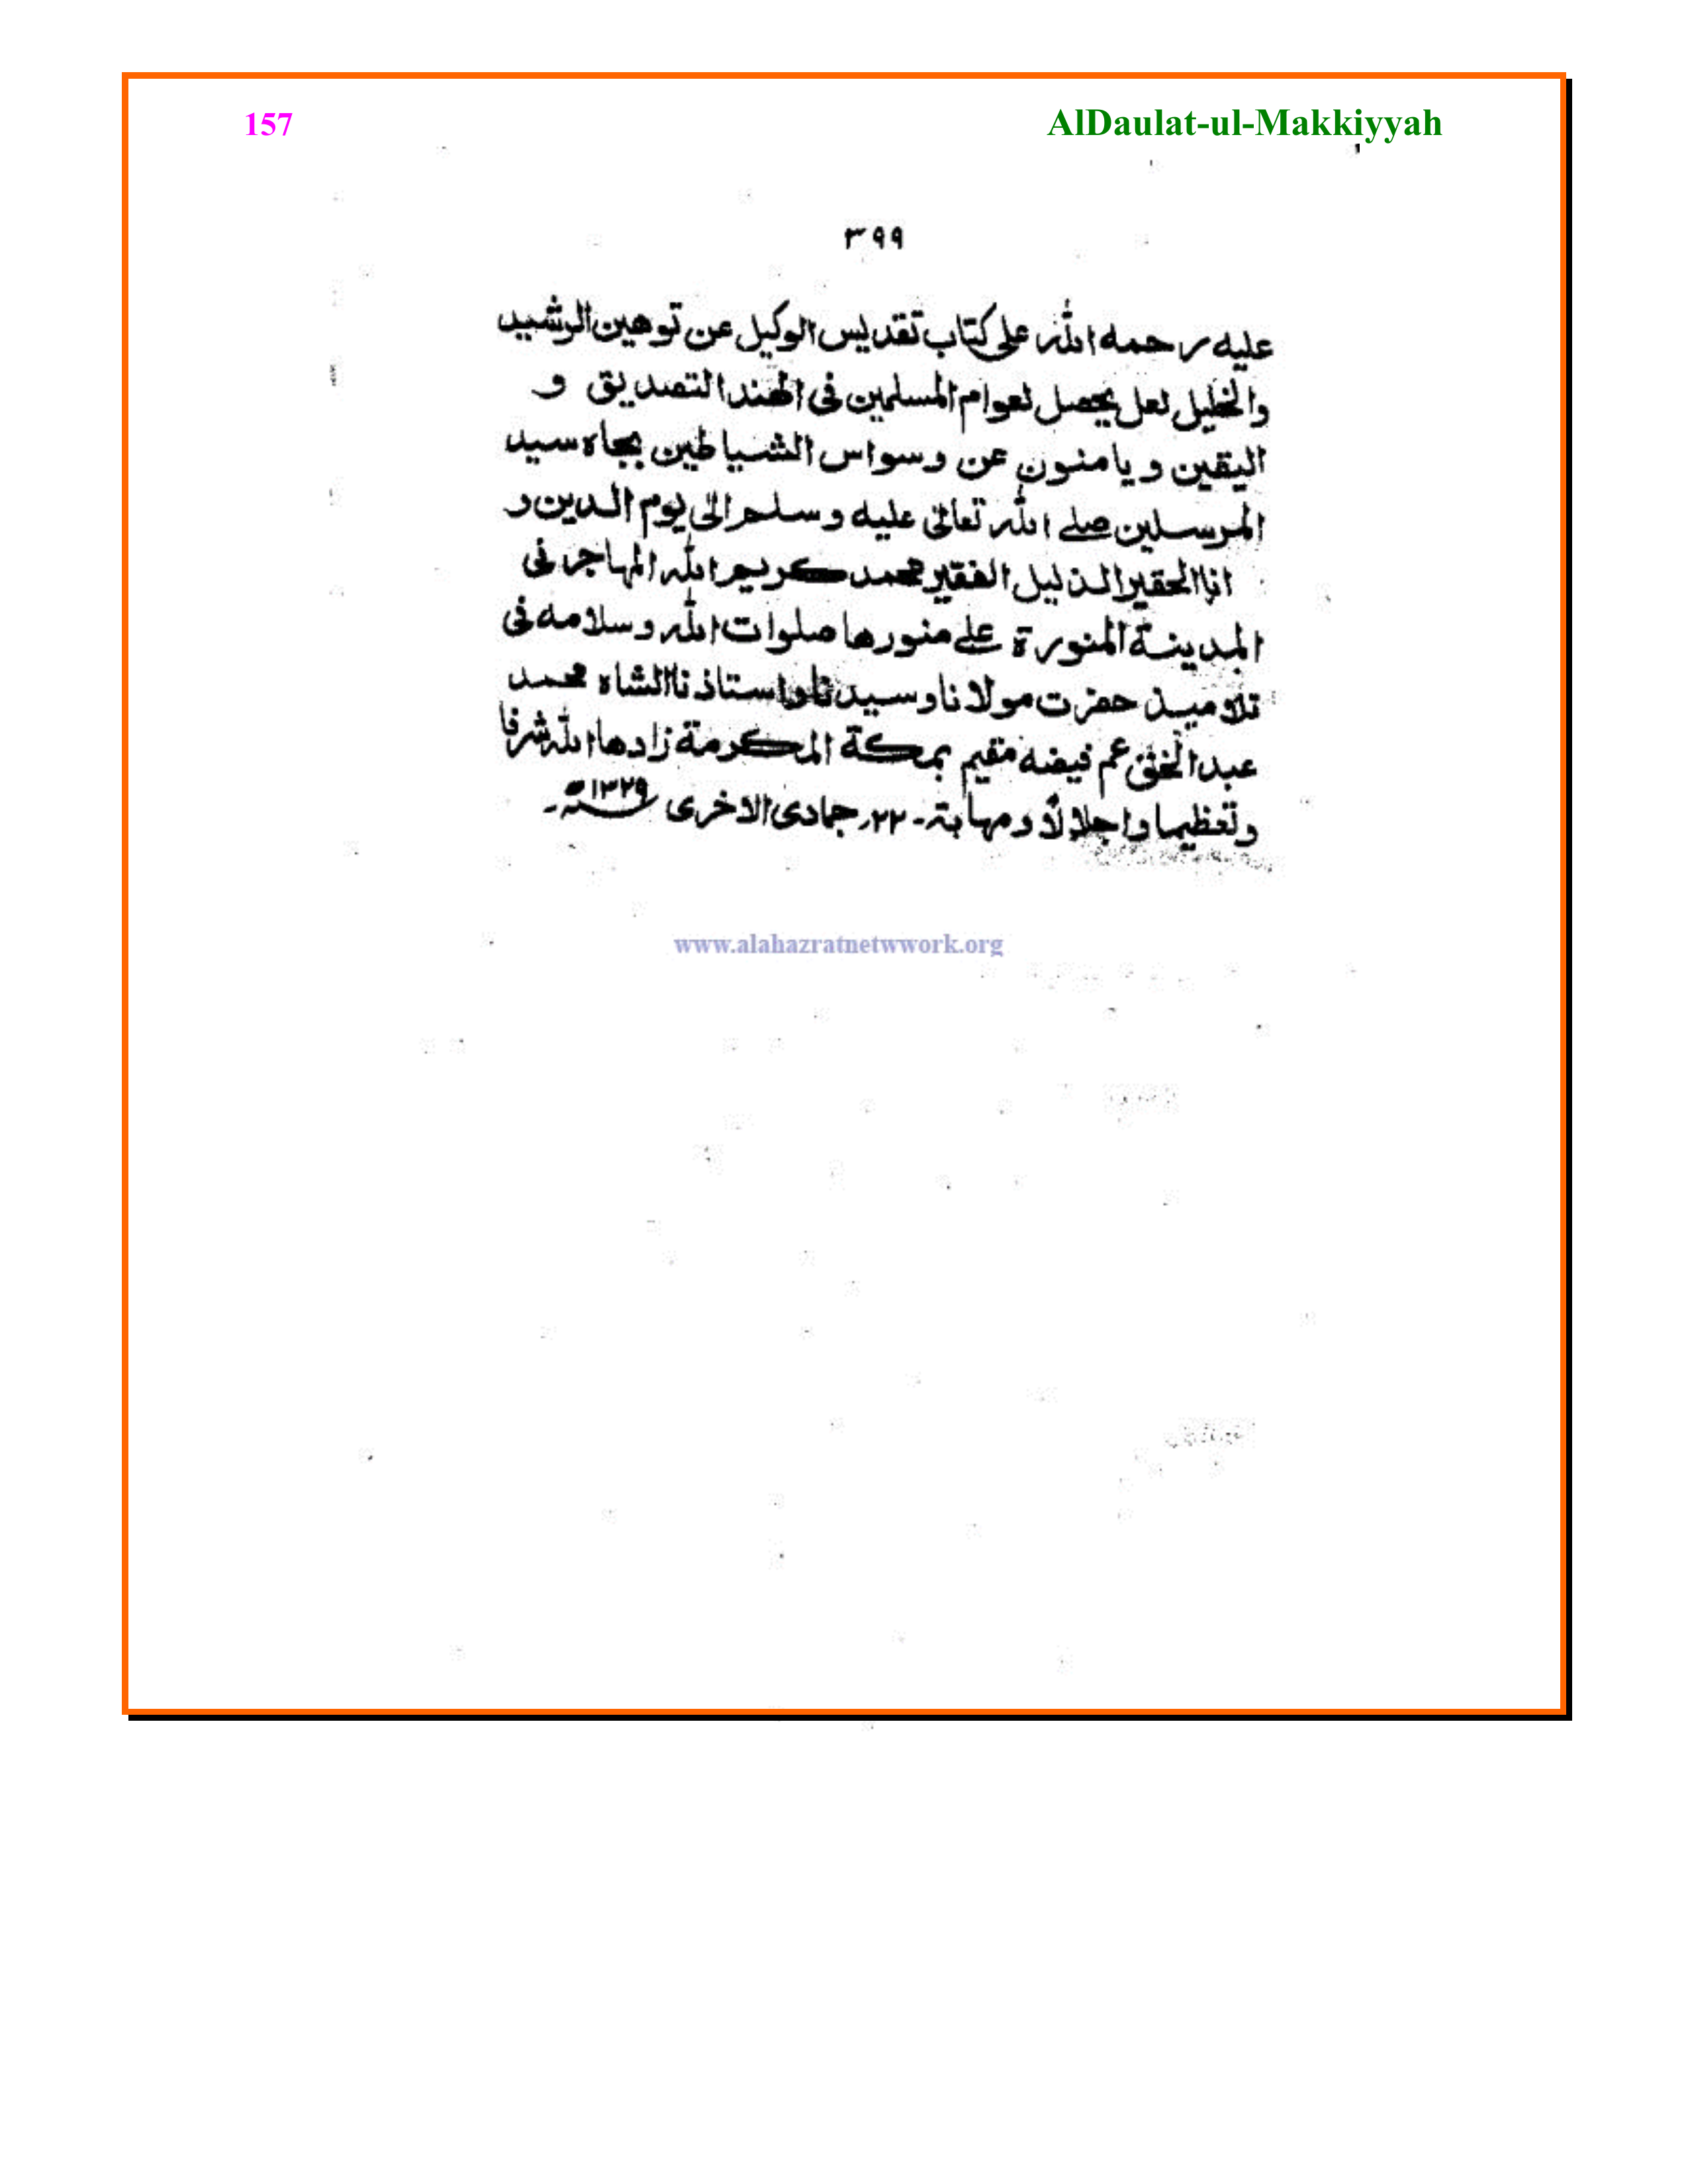 157 AlDaulat-ul-Makkiyyah
٣٩٩
عليه رحمه الله على كتاب تقديس الوكيل عن توهين الرشيد
والخليل لعل يحصل لعوام المسلمين فى الهند التصديق و
اليقين ويامنون عن وسواس الشياطين بجاه سيد
المرسلين صلے الله تعالىٰ عليه وسلم الىٰ يوم الدين و
انا الحقير الذليل الفقير محمد كريم الله المهاجر فى
المدينة المنورة علے منورها صلوات الله وسلامه فى
تلاميذ حضرت مولانا وسيدنا واستاذنا الشاه محمد
عبد الحق عم فيضه مقيم بمكة المكرمة زادها الله شرفا
وتعظيما واجلالاً ومهابة - ٢٢ر جمادى الاخرى ١٣٢٩ھ -
www.alahazratnetwwork.org